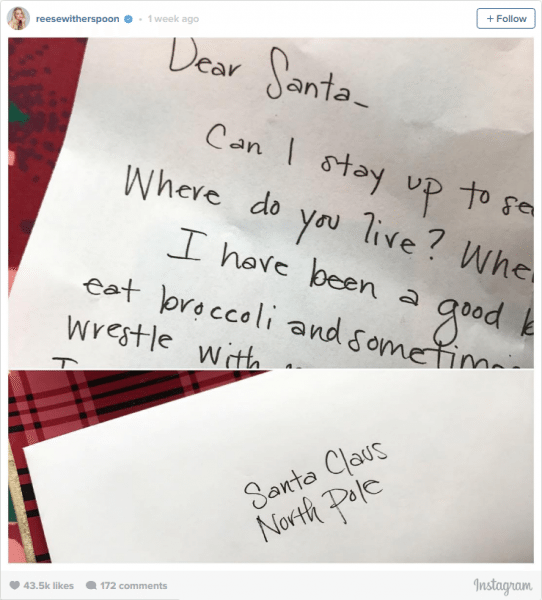 reesewitherspoon • 1 week ago
+ Follow
Dear Santa-
Can I stay up to se
Where do you live? Whe
I have been a good b
eat broccoli and sometim
wrestle with
I
Santa Claus
North Pole
43.5k likes 172 comments
Instagram